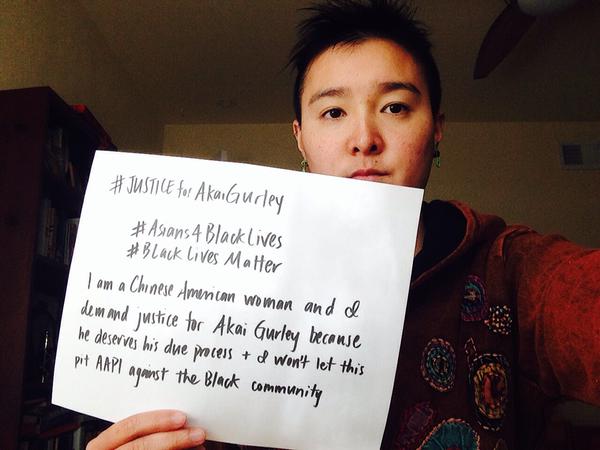 #JUSTICE for Akai Gurley
#Asians4BlackLives
#Black Lives Matter
I am a Chinese American woman and I
demand justice for Akai Gurley because
he deserves his due process + I won't let this
pit AAPI against the Black community